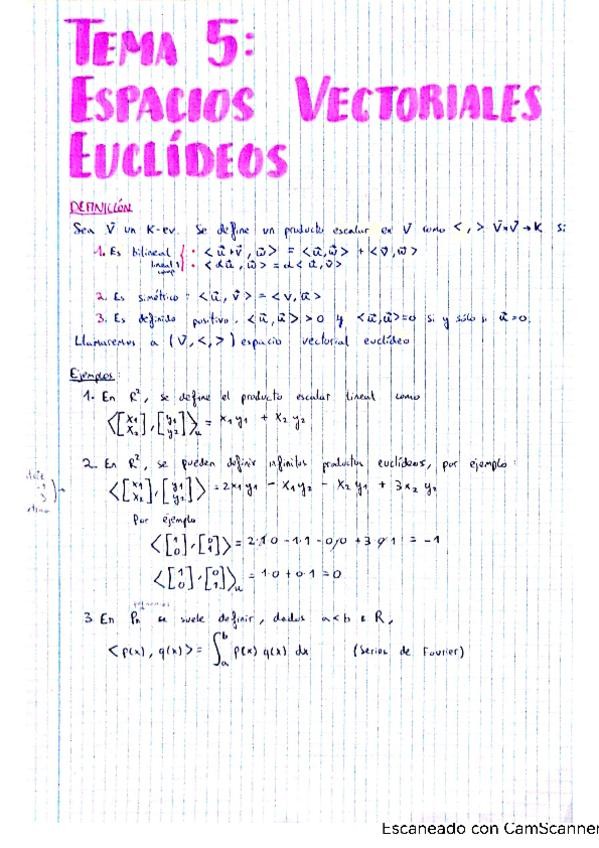 TEMA 5:
ESPACIOS VECTORIALES
EUCLÍDEOS
DEFINICIÓN
Sea V un K-ev. Se define un producto escalar en V como < , > V×V → K si:
1. Es bilineal { · <u+v, w> = <u,w> + <v,w>
lineal 1ª comp } · <αu, w> = α<u, v>
2. Es simétrico: <u, v> = <v, u>
3. Es definido positivo. <u, u> > 0 y <u,u>=0 si y sólo si u=0.
Llamaremos a (V, <,>) espacio vectorial euclídeo
Ejemplos:
1. En R², se define el producto escalar lineal como
<[x1 x2], [y1 y2]>u = x1 y1 + x2 y2
2. En R², se pueden definir infinitos productos euclídeos, por ejemplo:
<[x1 x2], [y1 y2]> = 2x1y1 - x1y2 - x2y1 + 3x2y2
Por ejemplo
<[1 0], [0 1]> = 2·1·0 - 1·1 - 0·0 + 3·0·1 = -1
<[1 0], [0 1]>u = 1·0 + 0·1 = 0
3 En Pn se suele definir, dados a<b ε R,
<p(x), q(x)> = ∫ₐᵇ p(x) q(x) dx (Series de Fourier)
Escaneado con CamScanner